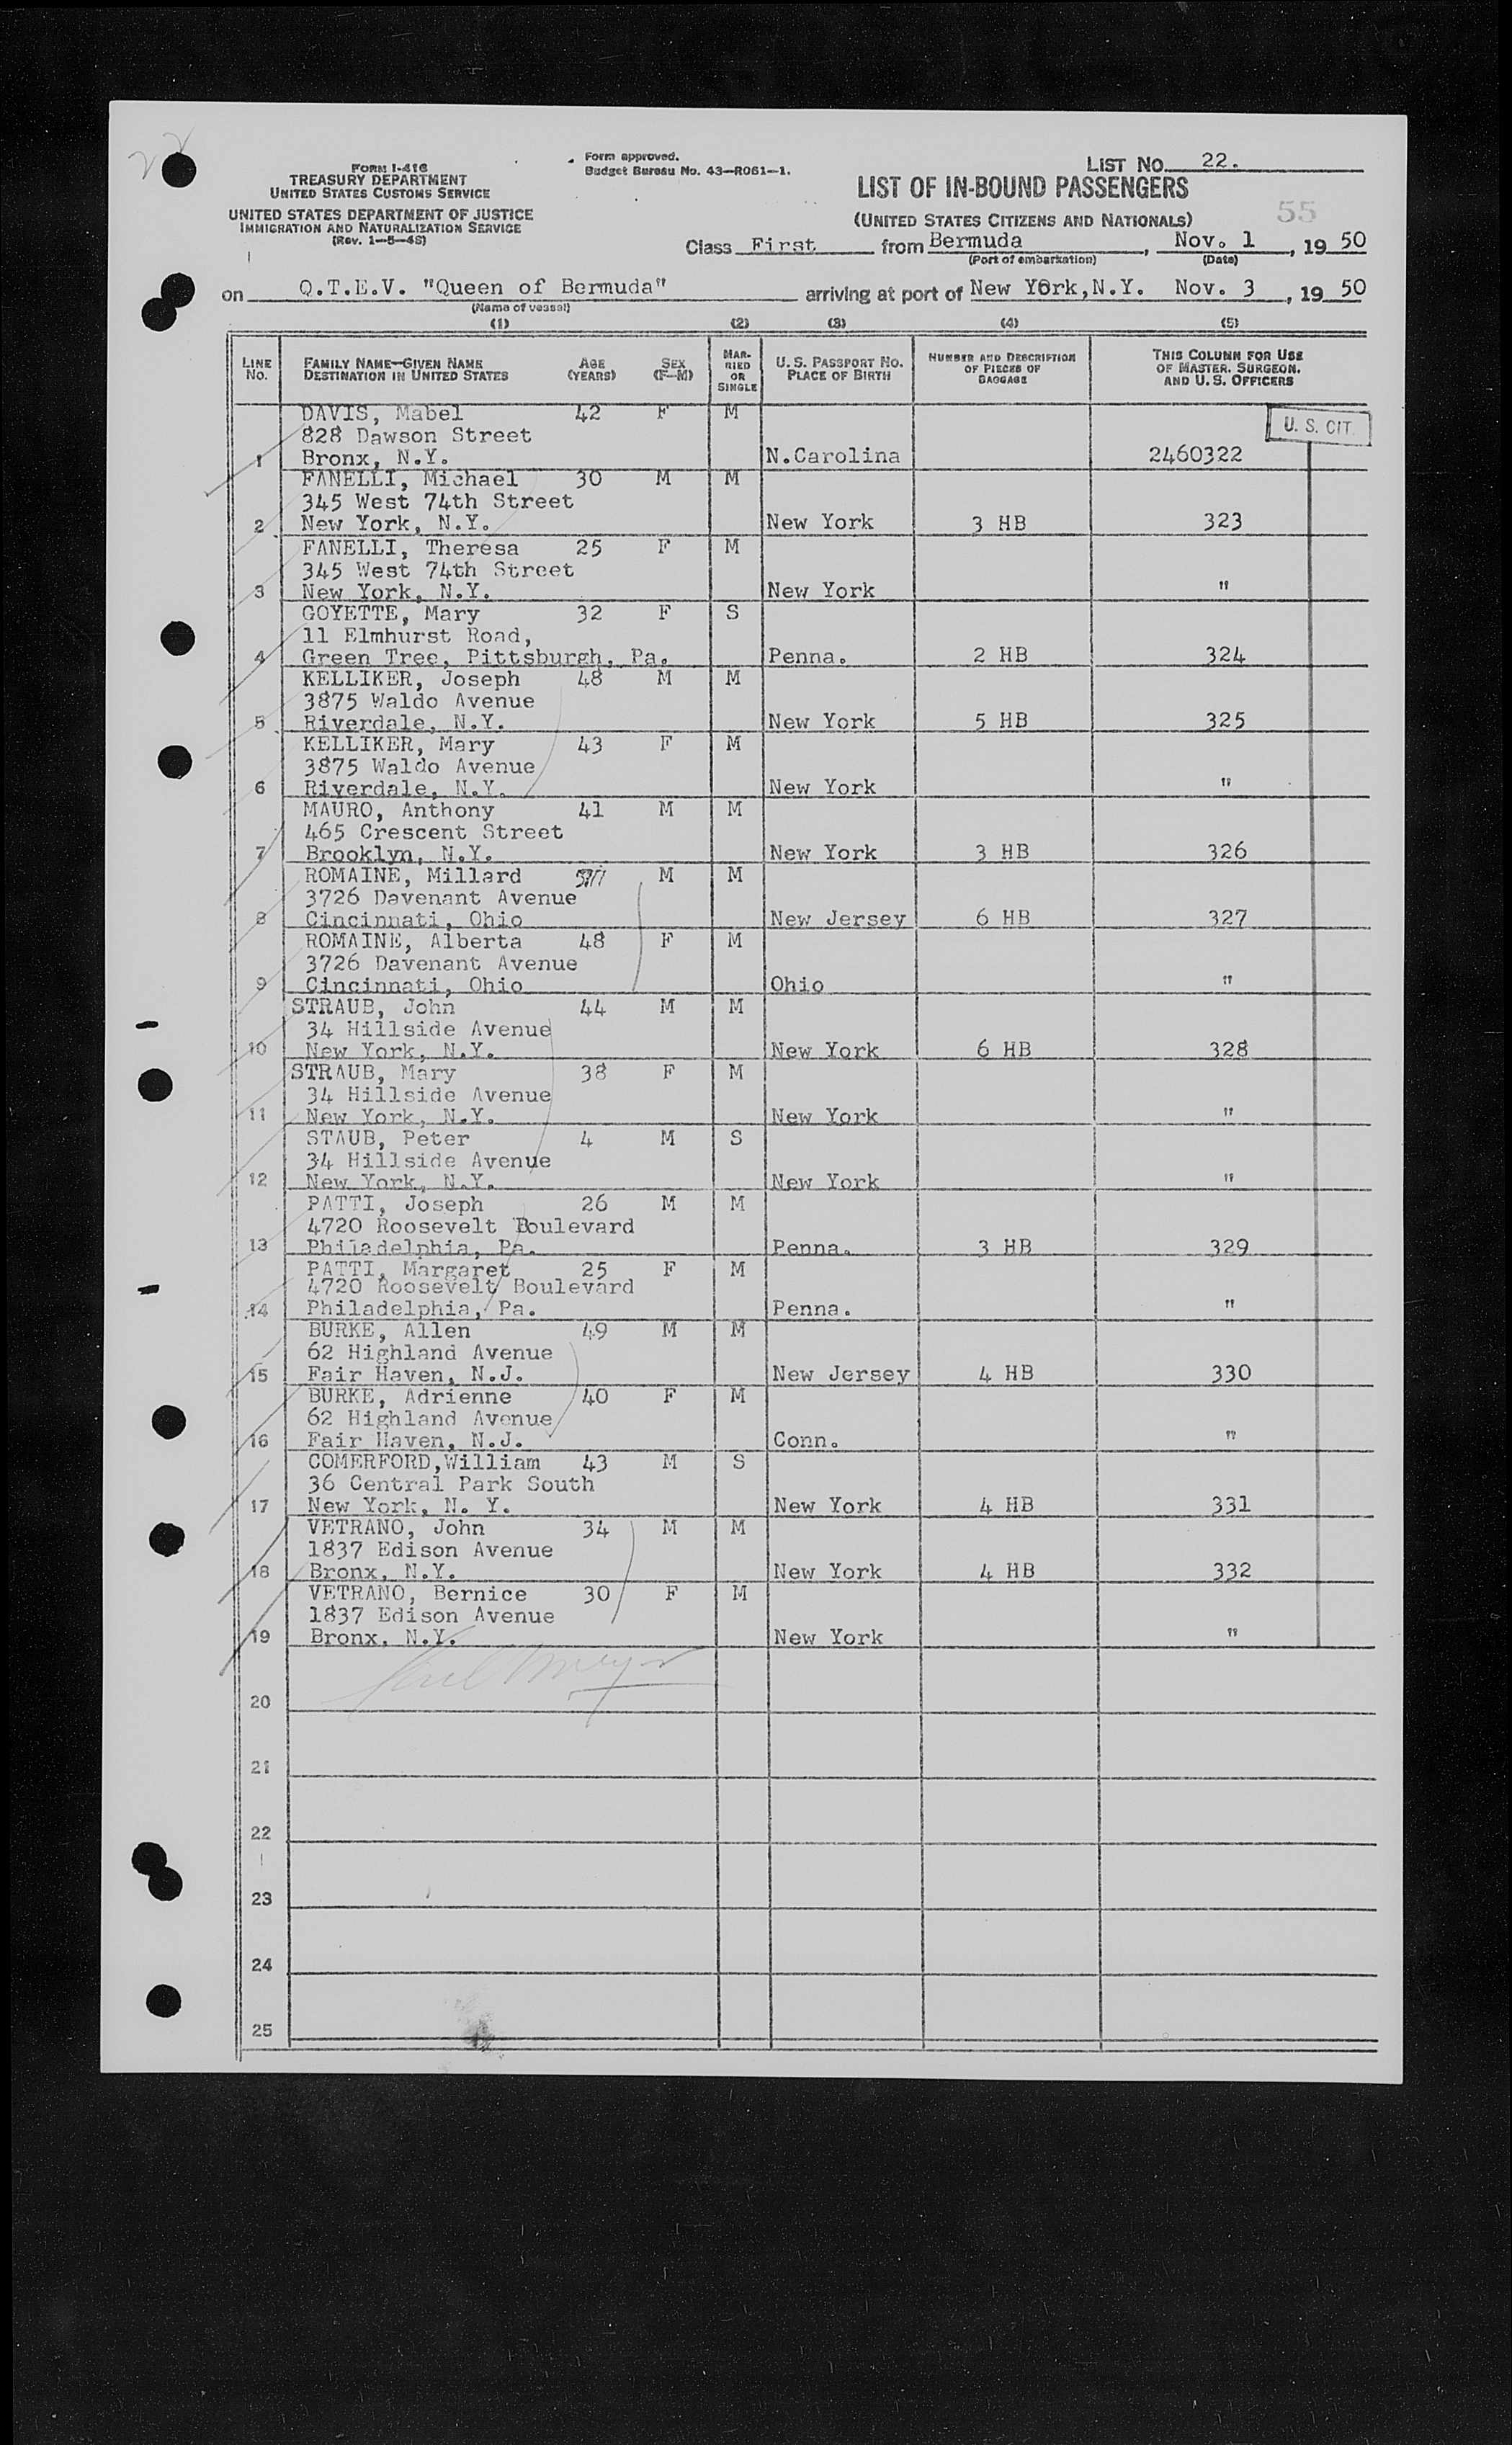 FORM I-416
TREASURY DEPARTMENT
UNITED STATES CUSTOMS SERVICE
UNITED STATES DEPARTMENT OF JUSTICE
IMMIGRATION AND NATURALIZATION SERVICE
(Rev. 1-5-48)
Form approved.
Budget Bureau No. 43-R061-1.
LIST NO. 22.
LIST OF IN-BOUND PASSENGERS
(UNITED STATES CITIZENS AND NATIONALS)
55
Class First from Bermuda, Nov. 1, 19 50
(Port of embarkation) (Date)
on Q.T.E.V. "Queen of Bermuda" arriving at port of New York, N.Y. Nov. 3, 19 50
(Name of vessel)
(1) (2) (3) (4) (5)
LINE NO. FAMILY NAME—GIVEN NAME DESTINATION IN UNITED STATES AGE (YEARS) SEX (F-M) MARRIED OR SINGLE U.S. PASSPORT NO. PLACE OF BIRTH NUMBER AND DESCRIPTION OF PIECES OF BAGGAGE THIS COLUMN FOR USE OF MASTER, SURGEON, AND U.S. OFFICERS
U. S. CIT.
DAVIS, Mabel 42 F M
828 Dawson Street
1 Bronx, N.Y. N.Carolina 2460322
FANELLI, Michael 30 M M
345 West 74th Street
2 New York, N.Y. New York 3 HB 323
FANELLI, Theresa 25 F M
345 West 74th Street
3 New York, N.Y. New York "
GOYETTE, Mary 32 F S
11 Elmhurst Road,
4 Green Tree, Pittsburgh, Pa. Penna. 2 HB 324
KELLIKER, Joseph 48 M M
3875 Waldo Avenue
5 Riverdale, N.Y. New York 5 HB 325
KELLIKER, Mary 43 F M
3875 Waldo Avenue
6 Riverdale, N.Y. New York "
MAURO, Anthony 41 M M
465 Crescent Street
7 Brooklyn, N.Y. New York 3 HB 326
ROMAINE, Millard M M
3726 Davenant Avenue
8 Cincinnati, Ohio New Jersey 6 HB 327
ROMAINE, Alberta 48 F M
3726 Davenant Avenue
9 Cincinnati, Ohio Ohio "
STRAUB, John 44 M M
34 Hillside Avenue
10 New York, N.Y. New York 6 HB 328
STRAUB, Mary 38 F M
34 Hillside Avenue
11 New York, N.Y. New York "
STAUB, Peter 4 M S
34 Hillside Avenue
12 New York, N.Y. New York "
PATTI, Joseph 26 M M
4720 Roosevelt Boulevard
13 Philadelphia, Pa. Penna. 3 HB 329
PATTI, Margaret 25 F M
4720 Roosevelt Boulevard
14 Philadelphia, Pa. Penna. "
BURKE, Allen 49 M M
62 Highland Avenue
15 Fair Haven, N.J. New Jersey 4 HB 330
BURKE, Adrienne 40 F M
62 Highland Avenue
16 Fair Haven, N.J. Conn. "
COMERFORD,William 43 M S
36 Central Park South
17 New York, N. Y. New York 4 HB 331
VETRANO, John 34 M M
1837 Edison Avenue
18 Bronx, N.Y. New York 4 HB 332
VETRANO, Bernice 30 F M
1837 Edison Avenue
19 Bronx. N.Y. New York "
20
21
22
23
24
25